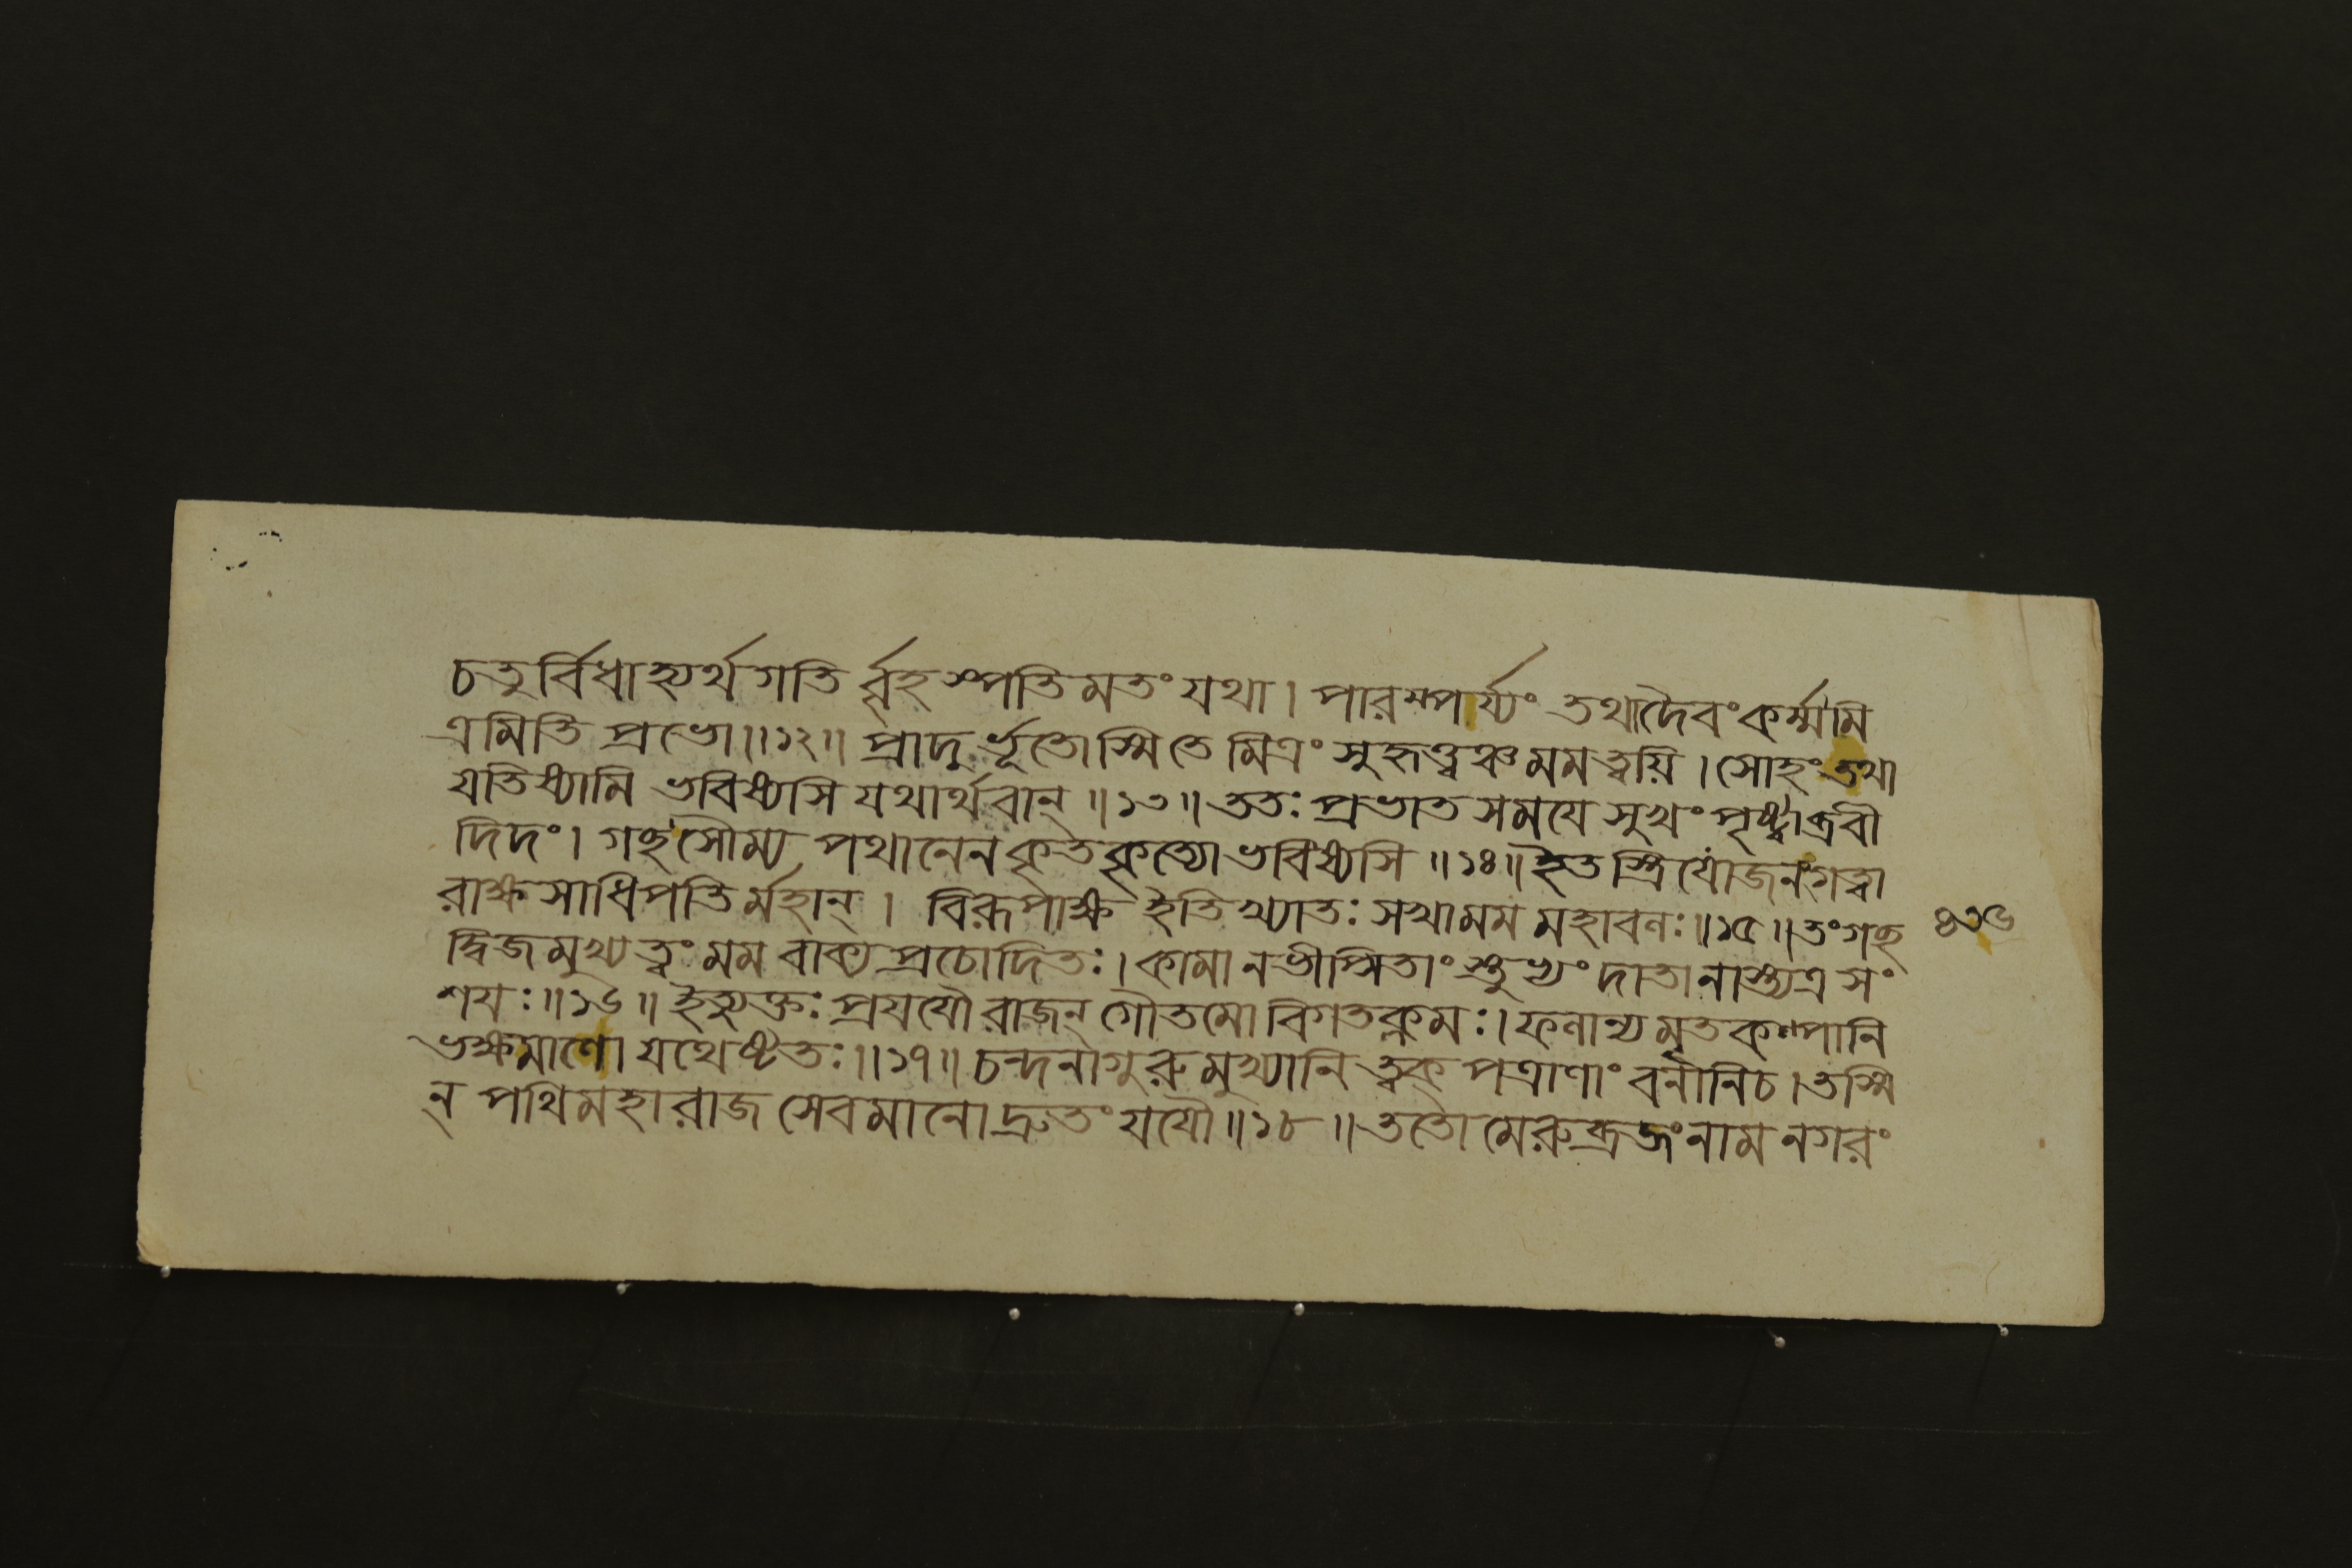 চতুর্বিধাহ্যর্থগতির্ব্বৃহস্পতিমতংযথা। পারম্পর্য্যং তথাদৈবংকর্ম্মমি
ত্রমিতি প্রভো॥১২॥ প্রাদুর্ভূতোস্মিতে মিত্রং সুহৃত্ত্বঞ্চমমত্বয়ি। সোহংতথা
যতিষ্যামি ভবিষ্যসি যথার্থবান্॥১৩॥ ততঃ প্রভাতসময়ে সুখংপৃষ্ট্বাব্রবী
দিদং। গচ্ছসৌম্য পথানেনকৃতকৃত্যোভবিষ্যসি॥১৪॥ইতস্ত্রিযোজনংগত্বা
রাক্ষসাধিপতির্মহান্। বিরূপাক্ষ ইতিখ্যাতঃ সখামম মহাবলঃ॥১৫॥তংগচ্ছ
দ্বিজমুখ্যত্বংমম বাক্যপ্রচোদিতঃ। কামানভীপ্সিতাংস্তুভ্যং দাতানাস্ত্যত্রসং
শয়ঃ॥১৬॥ ইত্যুক্তঃ প্রযযৌ রাজন্ গৌতমো বিগতক্লমঃ। ফলান্যমৃতকল্পানি
ভক্ষমাণো যথেষ্টতঃ॥১৭॥ চন্দনাগুরুমুখ্যানি ত্বক্পত্রাণাং বনানিচ। তস্মি
ন্ পথিমহারাজ সেবমানোদ্রুতংযযৌ॥১৮॥ ততো মেরুব্রজংনামনগরং